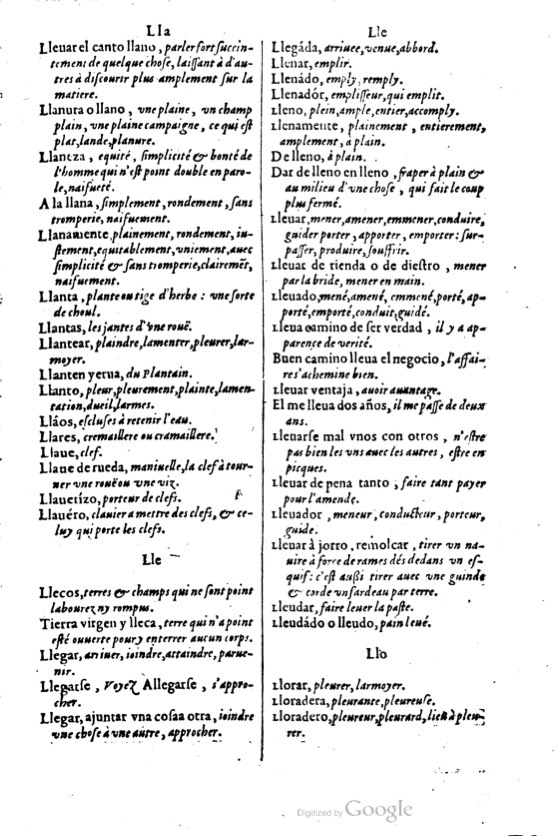 Lla
Lleuar el canto llano, parler fort succin-
tement de quelque chose, laissant à d'au-
tres à discourir plus amplement sur la
matiere.
Llanura o llano, vne plaine, vn champ
plain, vne plaine campagne, ce qui est
plat, lande, planure.
Llaneza, equité, simplicité & bonté de
l'homme qui n'est point double en paro-
le, naifueté.
A la llana, simplement, rondement, sans
tromperie, naifuement.
Llanamente, plainement, rondement, iu-
stement, equitablement, vniement, auec
simplicité & sans tromperie, clairemēt,
naifuement.
Llanta, plante ou tige d'herbe: vne sorte
de choul.
Llantas, les jantes d'vne rouë.
Llantear, plaindre, lamenter, pleurer, lar-
moyer.
Llanten yerua, du Plantain.
Llanto, pleur, pleurement, plainte, lamen-
tation, dueil, larmes.
Lláos, escluses à retenir l'eau.
Llares, cremaillere ou cramaillere.
Llaue, clef.
Llaue de rueda, maniuelle, la clef à tour-
ner vne rouë ou vne viz.
Llauerizo, porteur de clefs.
Llauéro, clauier a mettre des clefs, & ce-
luy qui porte les clefs.
Lle
Llecos, terres & champs qui ne sont point
labourez ny rompus.
Tierra virgen y lleca, terre qui n'a point
esté ouuerte pour y enterrer aucun corps.
Llegar, arriuer, ioindre, attaindre, parue-
nir.
Llegarse, Voyez Allegarse, s'appro-
cher.
Llegar, ajuntar vna cosa a otra, ioindre
vne chose à vne autre, approcher.
Lle
Llegáda, arriuee, venue, abbord.
Llenar, emplir.
Llenádo, emply, remply.
Llenadór, emplisseur, qui emplit.
Lleno, plein, ample, entier, accomply.
Llenamente, plainement, entierement,
amplement, à plain.
De lleno, à plain.
Dar de lleno en lleno, fraper à plain &
au milieu d'vne chose, qui fait le coup
plus fermé.
Lleuar, mener, amener, emmener, conduire,
guider porter, apporter, emporter: sur-
passer, produire, souffrir.
Lleuar de rienda o de diestro, mener
par la bride, mener en main.
Lleuado, mené, amené, emmené, porté, ap-
porté, emporté, conduit, guidé.
Lleua camino de ser verdad, il y a ap-
parence de verité.
Buen camino lleua el negocio, l'affai-
re s'achemine bien.
Lleuar ventaja, auoir auantage.
El me lleua dos años, il me passe de deux
ans.
Lleuarse mal vnos con otros, n'estre
pas bien les vns auec les autres, estre en
picques.
Lleuar de pena tanto, faire tant payer
pour l'amende.
Lleuador, meneur, conducteur, porteur,
guide.
Lleuar à jorro, remolcar, tirer vn na-
uire à force de rames dés dedans vn es-
quif: c'est aussi tirer auec vne guinde
& corde vn fardeau par terre.
Lleudar, faire leuer la paste.
Lleudádo o lleudo, pain leué.
Llo
Llorar, pleurer, larmoyer.
Lloradera, pleurante, pleureuse.
Lloradero, pleureur, pleurard, lieu à pleu-
rer.
Digitized by Google